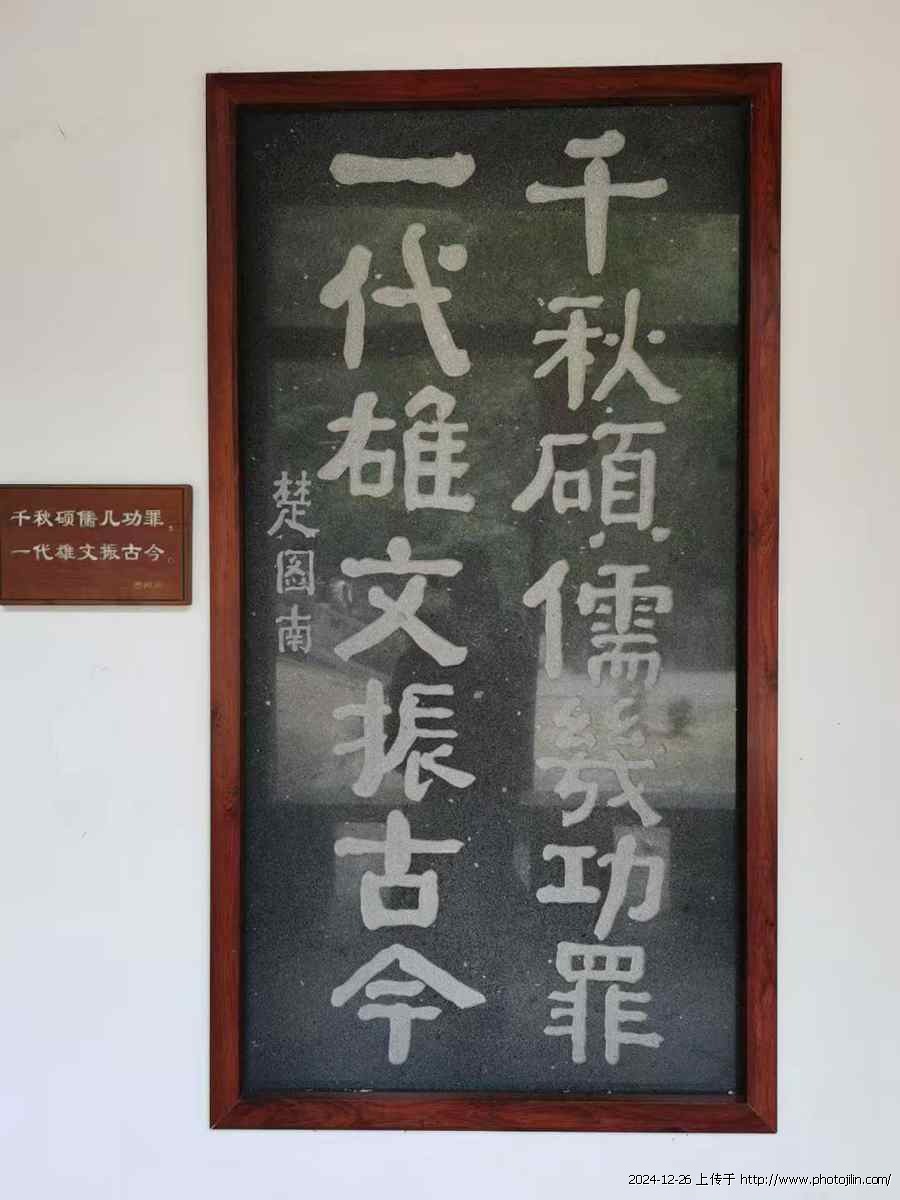 千秋碩儒幾功罪
一代雄文振古今
楚图南
千秋硕儒几功罪，
一代雄文振古今。
2024-12-26 上传于 http://www.photojilin.com/